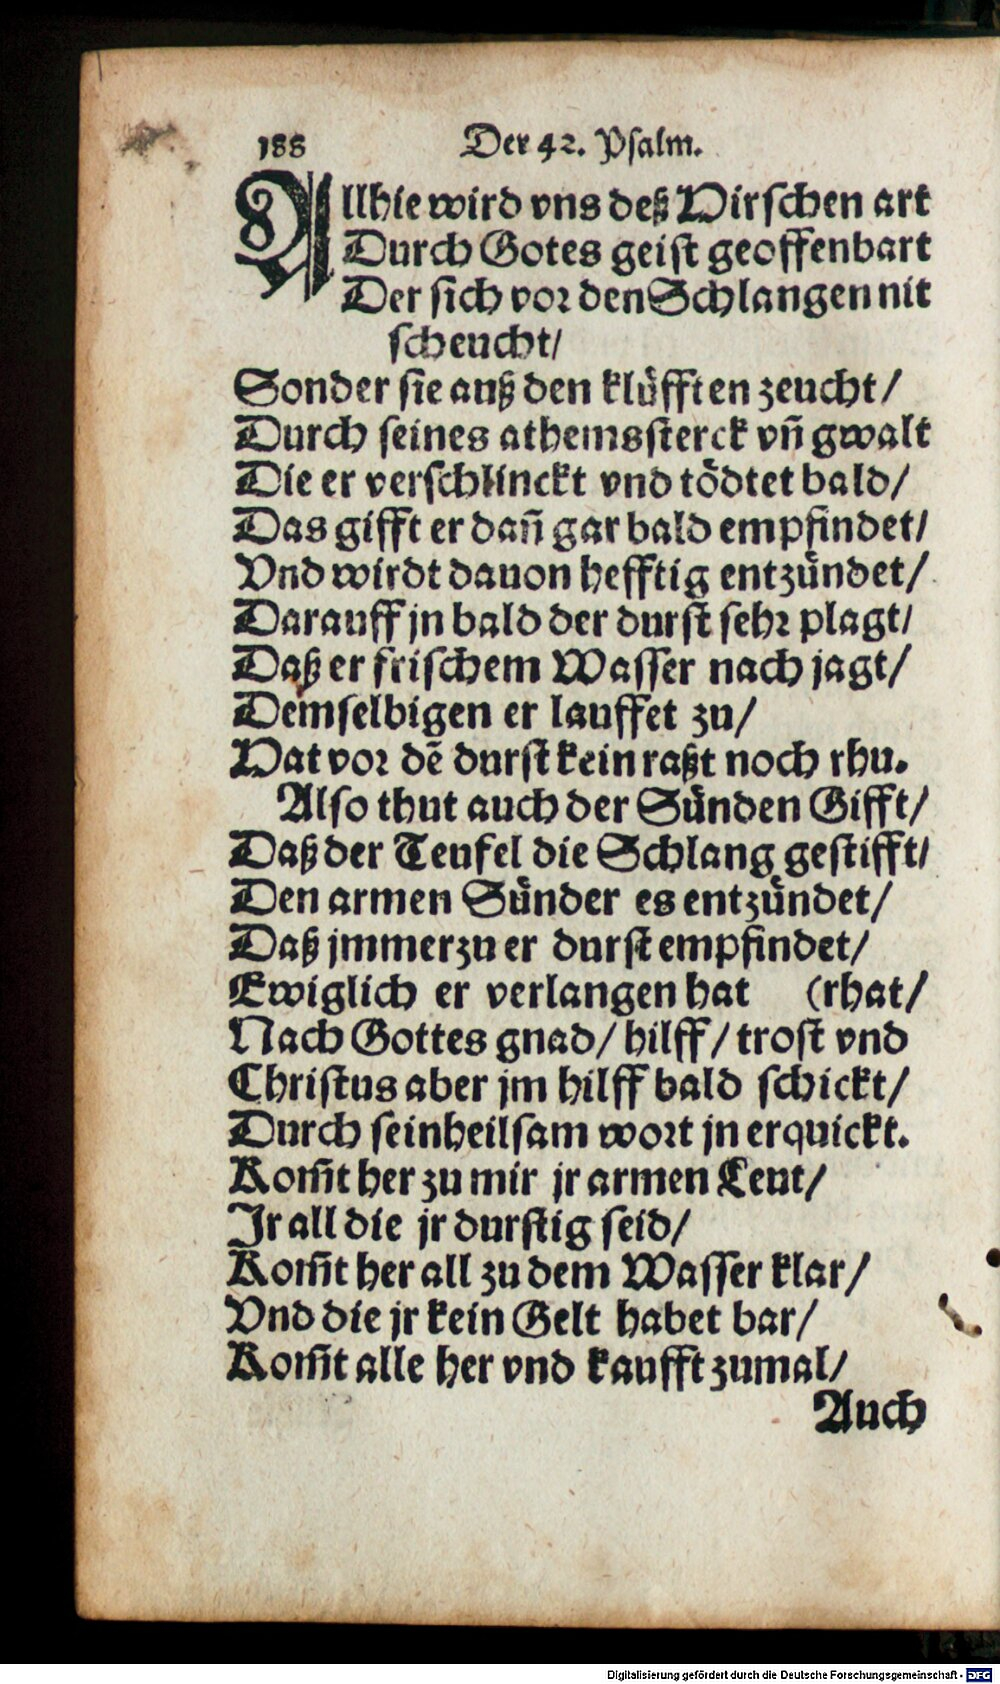 188 Der 42. Psalm.
Allhie wird vns deß Hirschen art
Durch Gotes geist geoffenbart
Der sich vor den Schlangen nit
scheucht/
Sonder sie auß den klüfften zeucht/
Durch seines athemssterck vn̄ gwalt
Die er verschlinckt vnd tödtet bald/
Das gifft er dan̄ gar bald empfindet/
Vnd wirdt dauon hefftig entzündet/
Darauff jn bald der durst sehr plagt/
Daß er frischem Wasser nach jagt/
Demselbigen er lauffet zu/
Hat vor dē durst kein raßt noch rhu.
Also thut auch der Sünden Gifft/
Daß der Teufel die Schlang gestifft/
Den armen Sünder es entzündet/
Daß jmmerzu er durst empfindet/
Ewiglich er verlangen hat (rhat/
Nach Gottes gnad/ hilff/ trost vnd
Christus aber jm hilff bald schickt/
Durch sein heilsam wort jn erquickt.
Kom̄t her zu mir jr armen Leut/
Jr all die jr durstig seid/
Kom̄t her all zu dem Wasser klar/
Vnd die jr kein Gelt habet bar/
Kom̄t alle her vnd kaufft zumal/
Auch
Digitalisierung gefördert durch die Deutsche Forschungsgemeinschaft - DFG